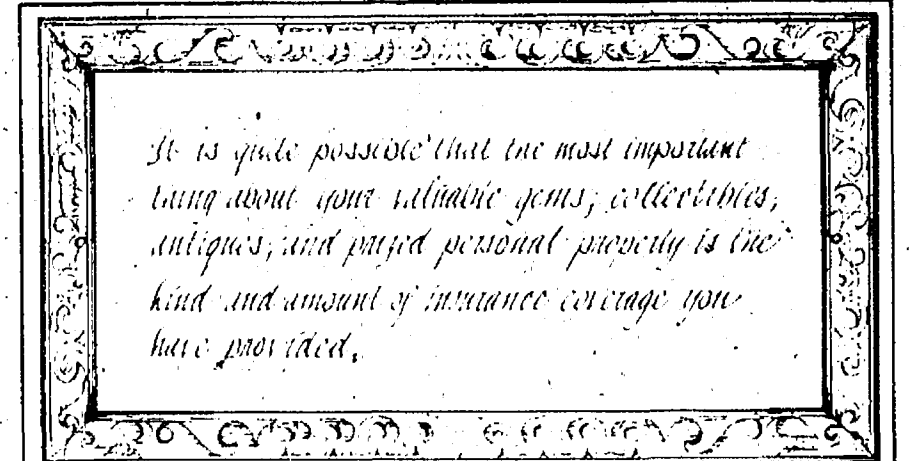 It is quite possible that the most important
thing about your valuable gems, collectibles,
antiques, and prized personal property is the
kind and amount of insurance coverage you
have provided.